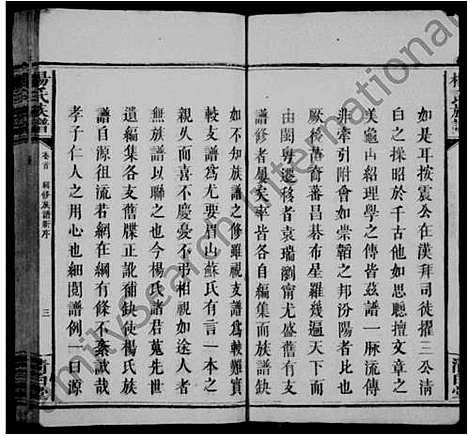 如是耳按震公在漢拜司徒擢三公清
白之操昭於千古他如思聰擅文章之
美龜山紹理學之傳皆茲譜一脈流傳
非牽引附會如崇韜之邦汾陽者比也
厥後苗裔蕃昌碁布星羅幾遍天下而
由閩粵遷移者袁瑞瀏甯尤盛舊有支
譜修者屢矣率皆各自編集而族譜缺
如不知族譜之修雖視支譜為較難實
較支譜為尤要眉山蘇氏有言一本之
親至於喜不慶憂不弔相視如途人者
無族譜以聯之也今楊氏諸君蒐先世
遺編集各支舊牒正訛補缺使楊氏族
譜自源徂流若網在綱有條不紊誠哉
孝子仁人之用心也細閱譜例一曰源
楊氏族譜
卷首
嗣修族譜新序
三
清白堂
FamilySearch International